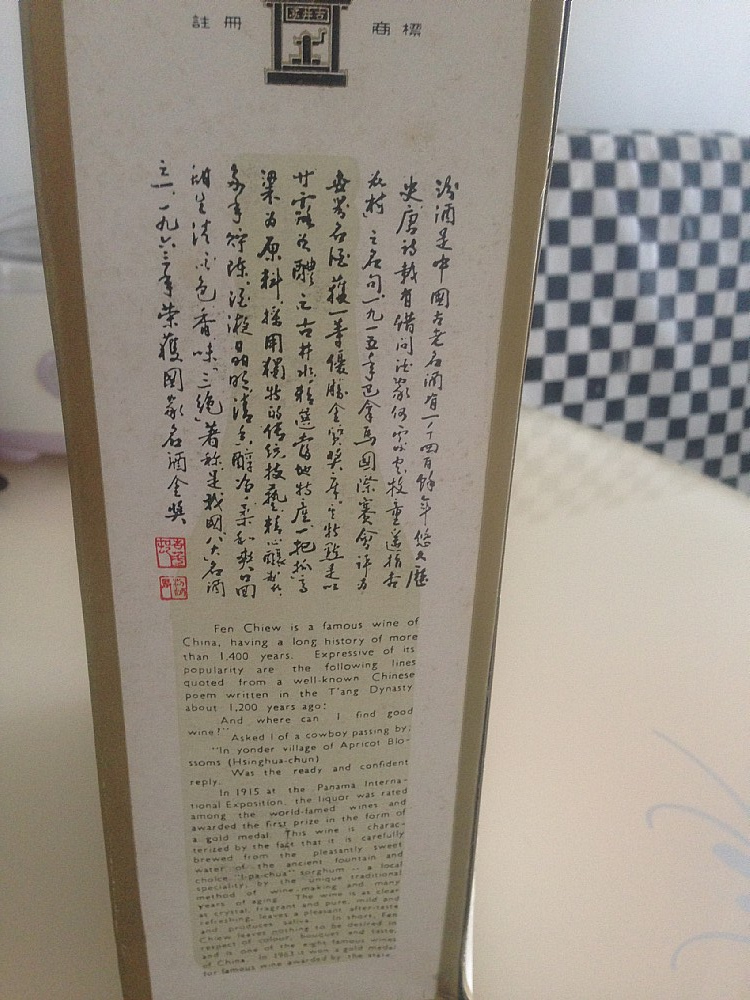 註冊 商標
古井亭
汾酒是中國古老名酒有一千四百餘年悠久歷
史唐詩載有借問酒家何處有牧童遙指杏
花村之名句一九一五年巴拿馬國際賽會評為
世界名酒獲一等優勝金質獎章其特點是以
甘露如醴之古井水精選當地特產一把抓高
粱為原料採用獨特的傳統技藝精心釀製
多年貯陳酒液晶明清香醇淨柔和爽口回
甜生津以色香味“三絕”著称是我國八大名酒
之一、一九六三年荣獲國家名酒金獎
Fen Chiew is a famous wine of
China, having a long history of more
than 1,400 years. Expressive of its
popularity are the following lines
quoted from a well-known Chinese
poem written in the T'ang Dynasty
about 1,200 years ago:
And where can I find good
wine?" Asked I of a cowboy passing by;
"In yonder village of Apricot Blo-
ssoms (Hsinghua-chun)
Was the ready and confident
reply.
In 1915 at the Panama Interna-
tional Exposition, the liquor was rated
among the world-famed wines and
awarded the first prize in the form of
a gold medal. This wine is charac-
terized by the fact that it is carefully
brewed from the pleasantly sweet
water of the ancient fountain and
choice "I-pa-chua" sorghum -- a local
speciality, by the unique traditional
method of wine-making and many
years of aging. The wine is as clear
as crystal, fragrant and pure, mild and
refreshing, leaves a pleasant after-taste
and produces saliva. In short, Fen
Chiew leaves nothing to be desired in
respect of colour, bouquet and taste,
and is one of the eight famous wines
of China. In 1963 it won a gold medal
for famous wine awarded by the state.